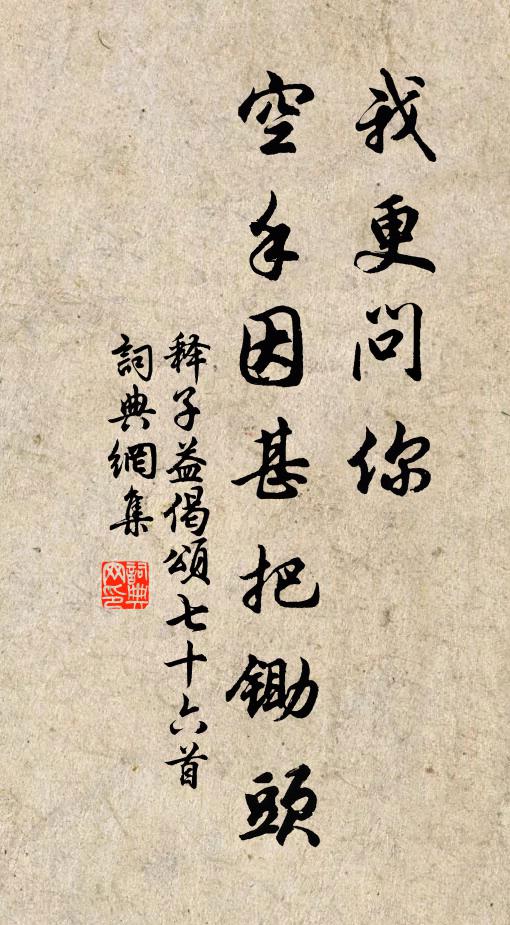 我更问你
空手因甚把鋤頭
释子益偈頌七十六首
詞典網集
詞典网印